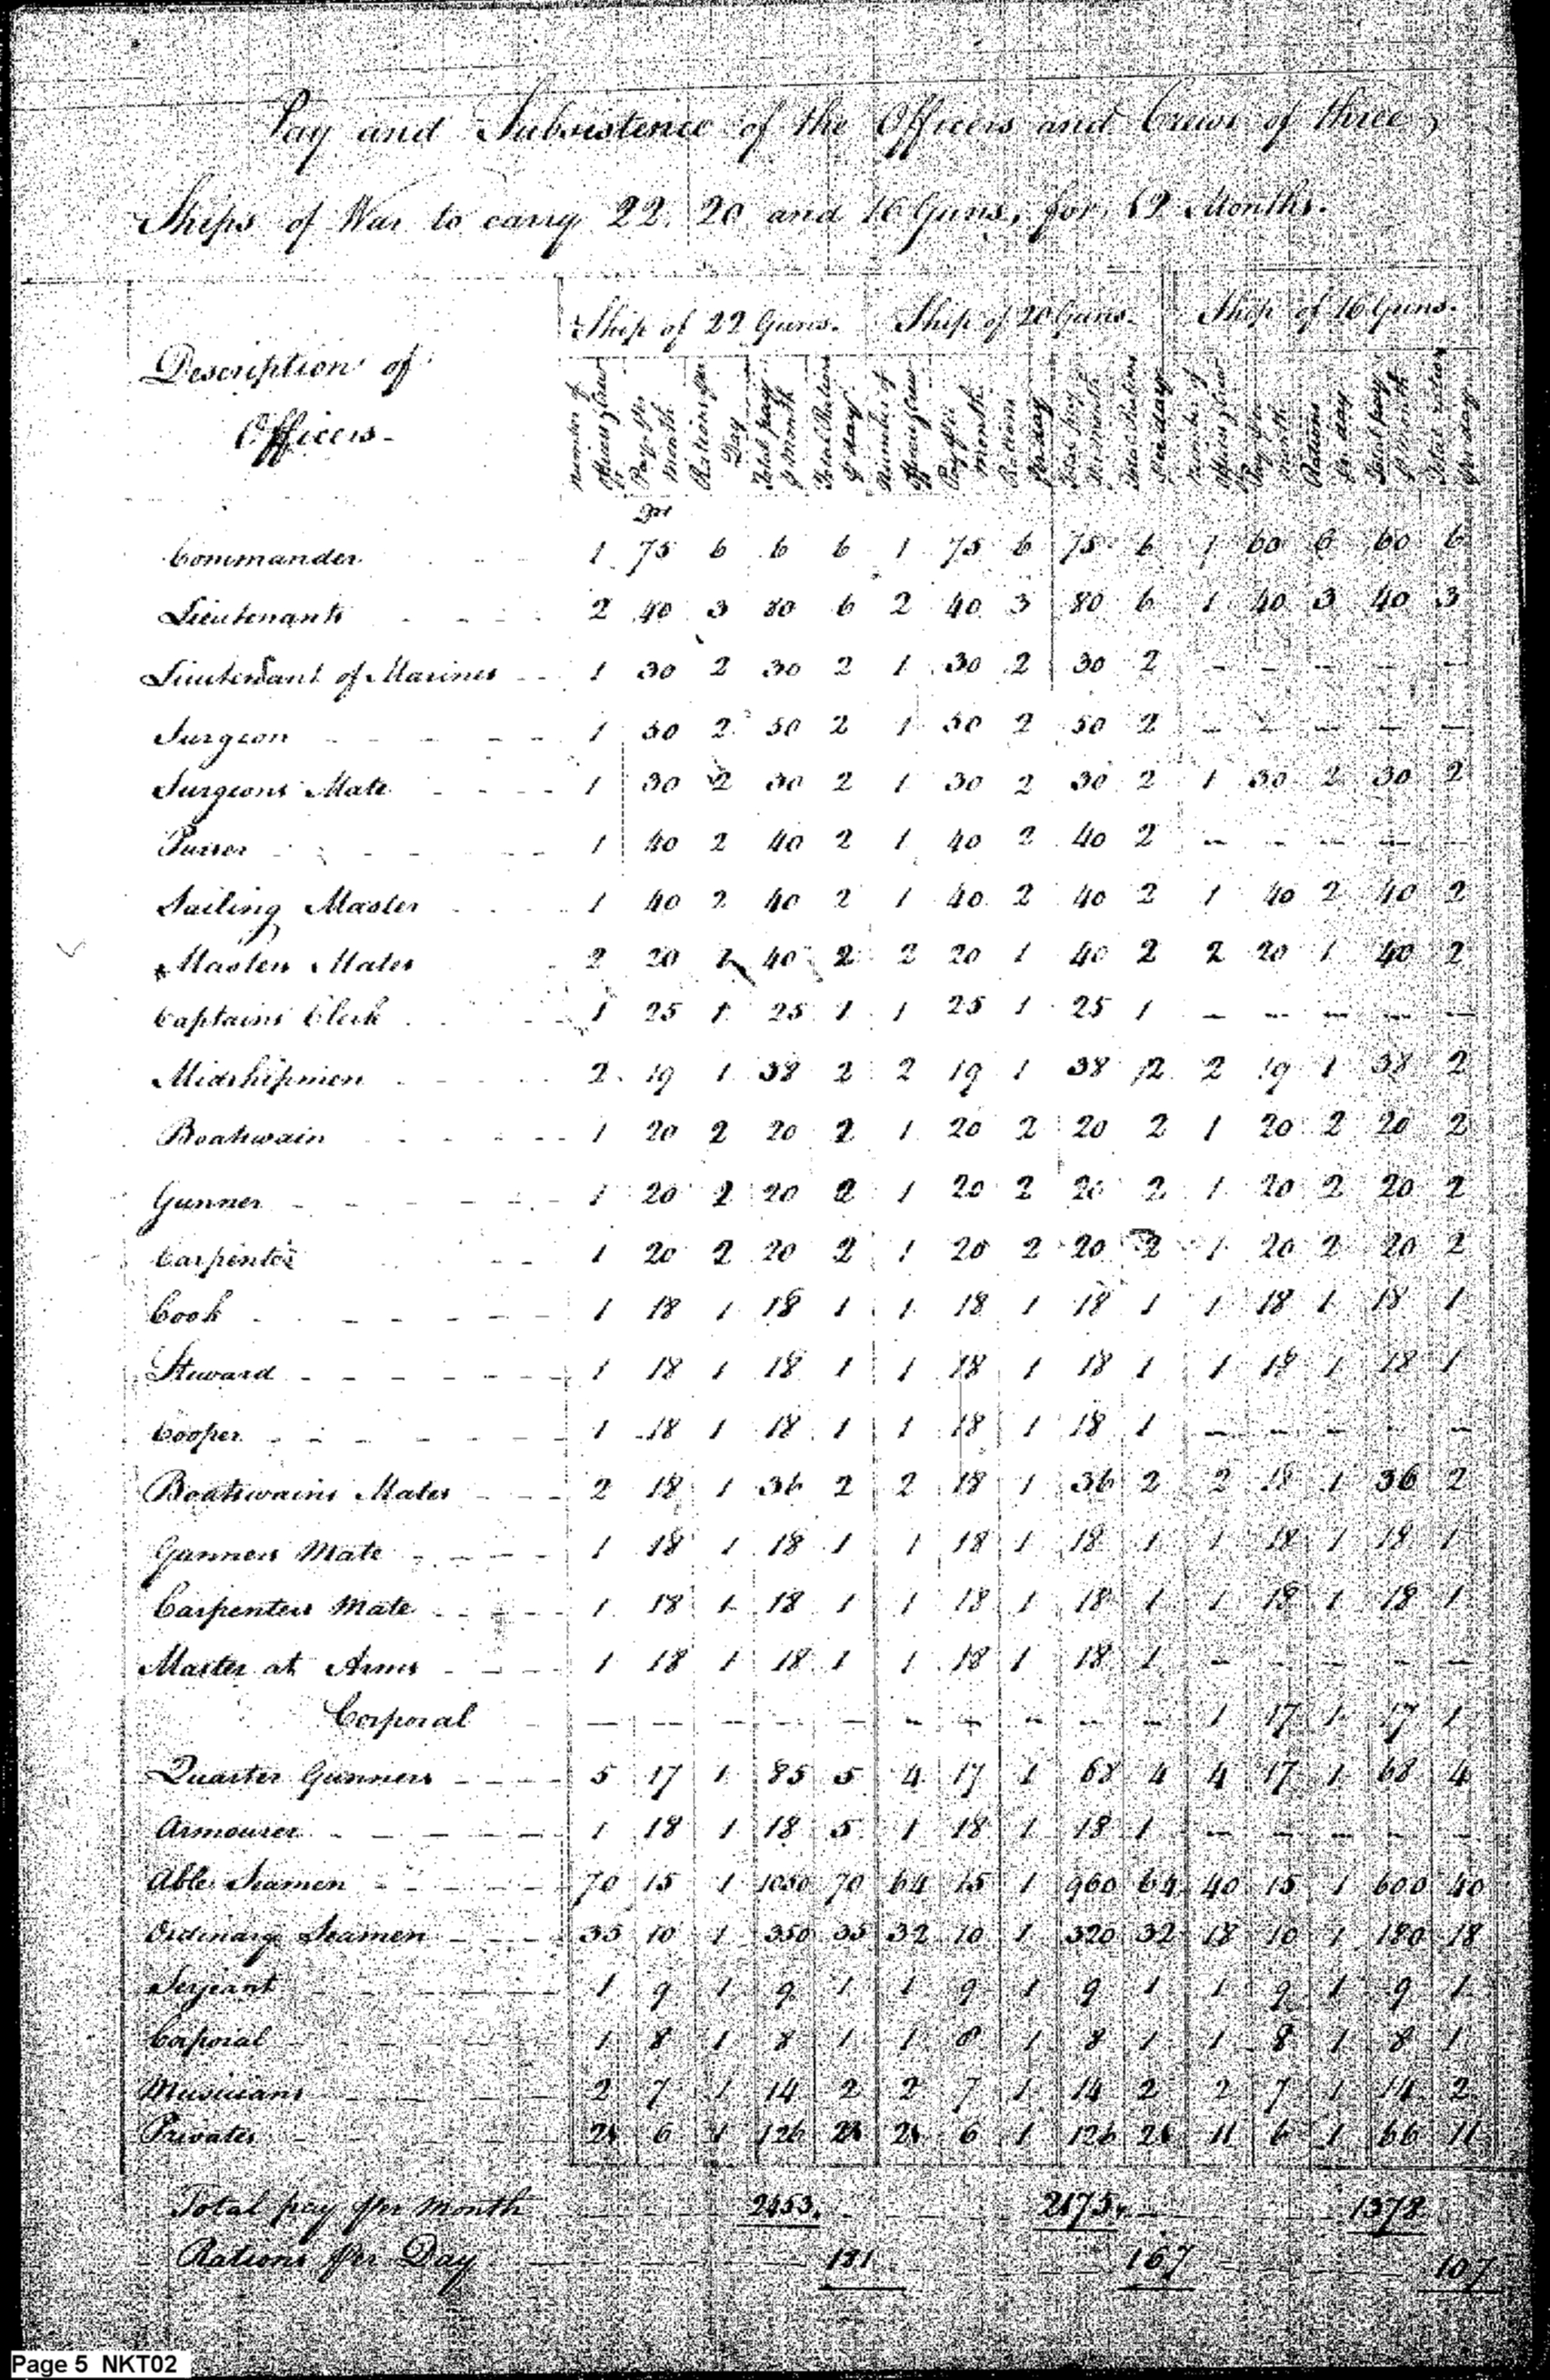 Pay and Subsistence of the Officers and Crews of three
Ships of War to carry 22. 20 and 16 Guns, for 12 Months.
Description of Officers
Ship of 22 Guns. Ship of 20 Guns. Ship of 16 Guns.
Number of Officers &c Pay per Month Rations per Day Total pay ⅌ Month Total Rations ⅌ day Number of Officers &c Pay per Month Rations Per day Total Pay Per Month Total Rations Per day Number of Officers &c Pay per Month Rations Pr day Total pay ⅌ Month Total rations Per day
Commander 1 75 6 6 6 1 75 6 75 6 1 60 6 60 6
Lieutenants 2 40 3 80 6 2 40 3 80 6 1 40 3 40 3
Lieutenant of Marines 1 30 2 30 2 1 30 2 30 2 – – – – –
Surgeon 1 50 2 50 2 1 50 2 50 2 – – – – –
Surgeons Mate 1 30 2 30 2 1 30 2 30 2 1 30 2 30 2
Purser 1 40 2 40 2 1 40 2 40 2 – – – – –
Sailing Master 1 40 2 40 2 1 40 2 40 2 1 40 2 40 2
Masters Mates 2 20 1 40 2 2 20 1 40 2 2 20 1 40 2
Captains Clerk 1 25 1 25 1 1 25 1 25 1 – – – – –
Midshipmen 2 19 1 38 2 2 19 1 38 2 2 19 1 38 2
Boatswain 1 20 2 20 2 1 20 2 20 2 1 20 2 20 2
Gunner 1 20 2 20 2 1 20 2 20 2 1 20 2 20 2
Carpenter 1 20 2 20 2 1 20 2 20 2 1 20 2 20 2
Cook 1 18 1 18 1 1 18 1 18 1 1 18 1 18 1
Steward 1 18 1 18 1 1 18 1 18 1 1 18 1 18 1
Cooper 1 18 1 18 1 1 18 1 18 1 – – – – –
Boatswains Mates 2 18 1 36 2 2 18 1 36 2 2 18 1 36 2
Gunners Mate 1 18 1 18 1 1 18 1 18 1 1 18 1 18 1
Carpenters Mate 1 18 1 18 1 1 18 1 18 1 1 18 1 18 1
Master at Arms 1 18 1 18 1 1 18 1 18 1 – – – – –
Corporal – – – – – – – – – – 1 17 1 17 1
Quarter Gunners 5 17 1 85 5 4 17 1 68 4 4 17 1 68 4
Armourer 1 18 1 18 5 1 18 1 18 1 – – – – –
Able Seamen 70 15 1 1050 70 64 15 1 960 64 40 15 1 600 40
Ordinary Seamen 35 10 1 350 35 32 10 1 320 32 18 10 1 180 18
Serjeant 1 9 1 9 1 1 9 1 9 1 1 9 1 9 1
Corporal 1 8 1 8 1 1 8 1 8 1 1 8 1 8 1
Musicians 2 7 1 14 2 2 7 1 14 2 2 7 1 14 2
Privates 21 6 1 126 21 21 6 1 126 21 11 6 1 66 11
Total pay per Month 2453. 2175. 1378
Rations per Day 181 167 107
Page 5 NKT02